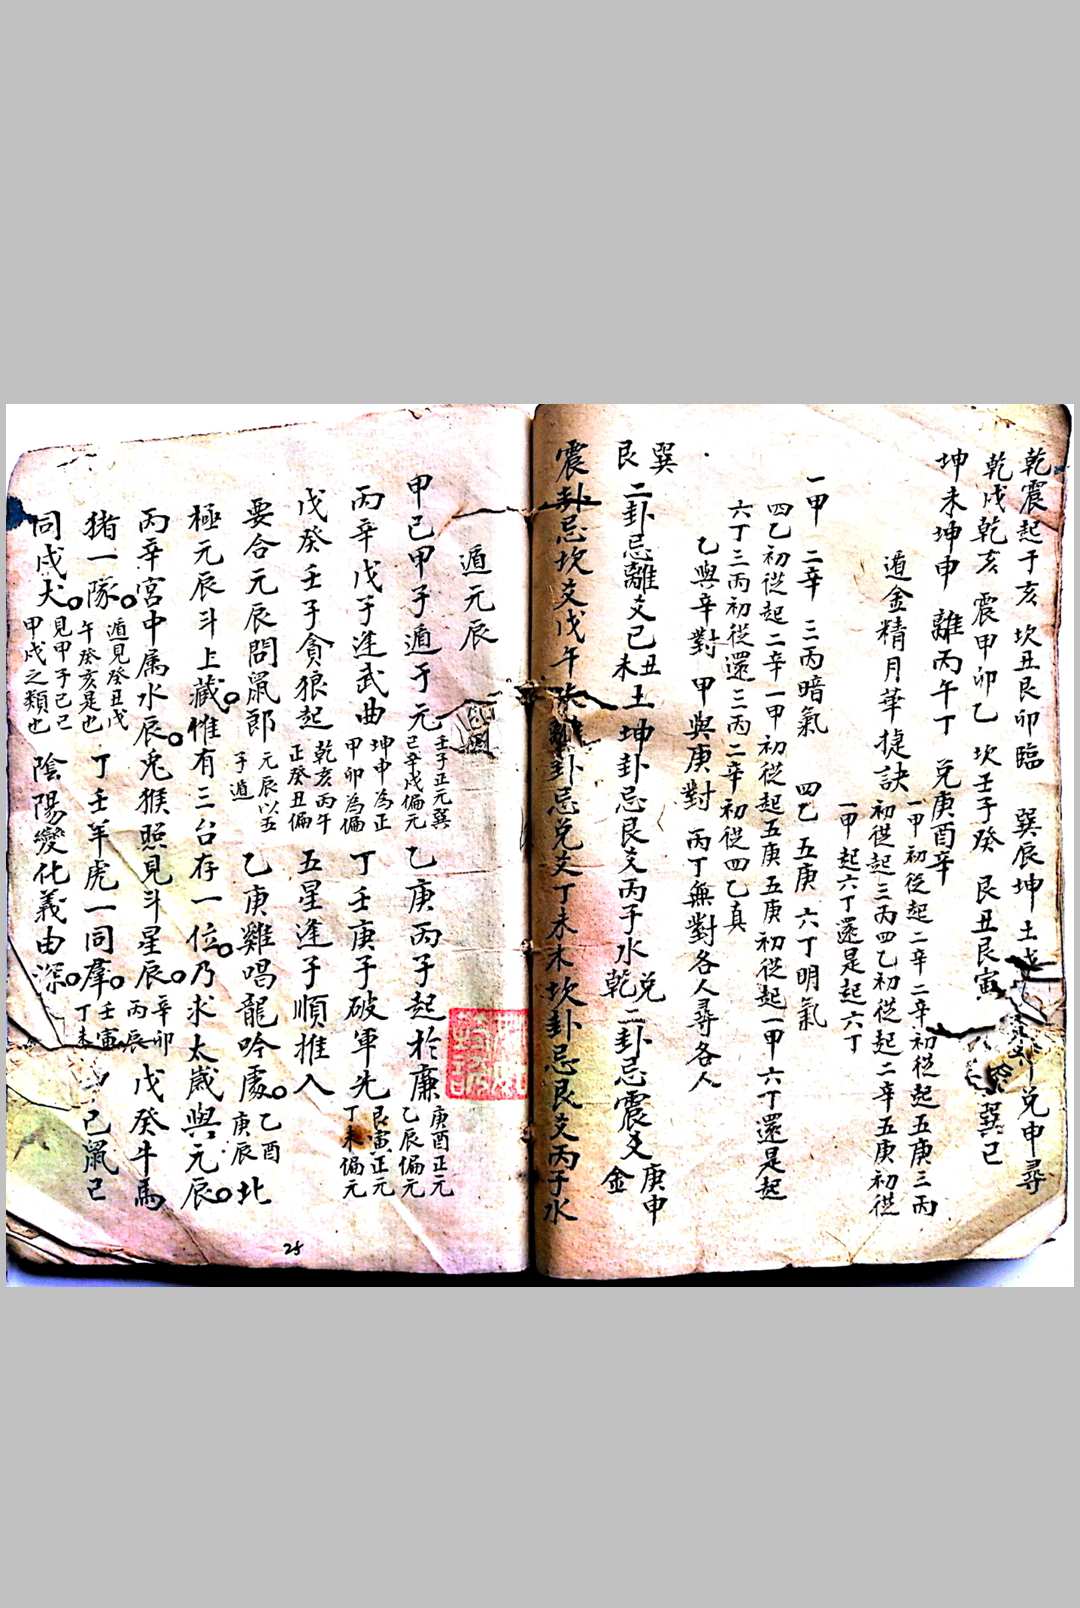 乾震起于亥 坎丑艮卯臨 巽辰坤土 兌申尋
乾戌乾亥 震甲卯乙 坎壬子癸 艮丑艮寅 巽巳
坤未坤申 離丙午丁 兌庚酉辛
遁金精月華捷訣
一甲初從起二辛二辛初從起五庚三丙
初從起三丙四乙初從起二辛五庚初從
一甲起六丁還是起六丁
一甲 二辛 三丙暗氣 四乙 五庚 六丁明氣
四乙初從起二辛一甲初從起五庚五庚初從起一甲六丁還是起
六丁三丙初從還三丙二辛初從四乙真
乙與辛對 甲與庚對 丙丁無對各人尋各人
巽艮二卦忌離爻己丑未土坤卦忌艮爻丙子水兌乾二卦忌震爻庚申金
震卦忌坎爻戊午 卦忌兌爻丁未木坎卦忌艮爻丙子水
遁元辰
甲己甲子遁于元 壬子正元巽 己辛戌偏元 乙庚丙子起於廉 庚酉正元 乙辰偏元
丙辛戊子逢武曲 坤申為正 甲卯為偏 丁壬庚子破軍先 艮寅正元 丁未偏元
戊癸壬子貪狼起 乾亥丙午 正癸丑偏 五星逢子順推入
要合元辰問鼠郎 元辰以五 子遁 乙庚雞唱龍吟處 乙酉 庚辰 北
極元辰斗上藏惟有三台存一位乃求太歲與元辰
丙辛宮中属水辰兎猴照見斗星辰 辛卯 丙辰 戊癸牛馬
猪一隊 遁見癸丑戊 午癸亥是也 丁壬羊虎一同羣 壬寅 丁未 己鼠己
同戌犬 見甲子己巳 甲戌之類也 陰陽變化義由深
25